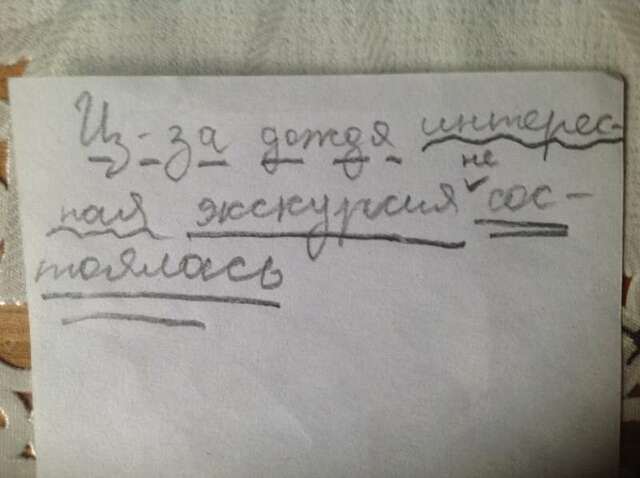 Из-за дождя интерес-
ная экскурсия не сос-
тоялась